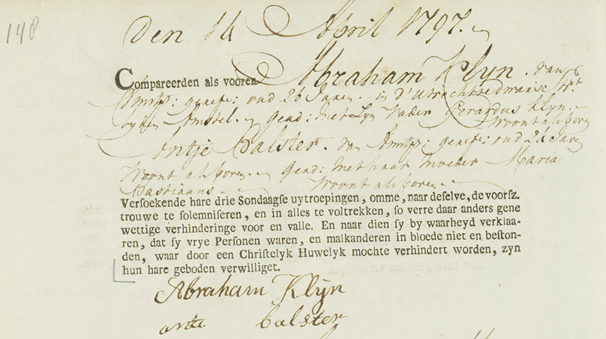 148
Den 14 April 1797.
Compareerden als vooren Abraham Klyn. van
Amst: geref: oud 26 Jaar. in d'Utrechtsedwarsst
Amstel. gead: met zyn vader Gerardus Klyn.
woont alsboven
Antje Balster. van Amst: geref: oud 21 Jaar
woont alsboven. gead: met haar moeder Maria
Bastiaans. woont alsboven.
Versoekende hare drie Sondaagse uytroepingen, omme, naar deselve, de voorsz.
trouwe te solemniseren, en in alles te voltrekken, so verre daar anders gene
wettige verhinderinge voor en valle. En naar dien sy by waarheyd verklaa-
ren, dat sy vrye Personen waren, en malkanderen in bloede niet en beston-
den, waar door een Christelyk Huwelyk mochte verhindert worden, zyn
hun hare geboden verwilliget.
Abraham Klÿn
antie balster